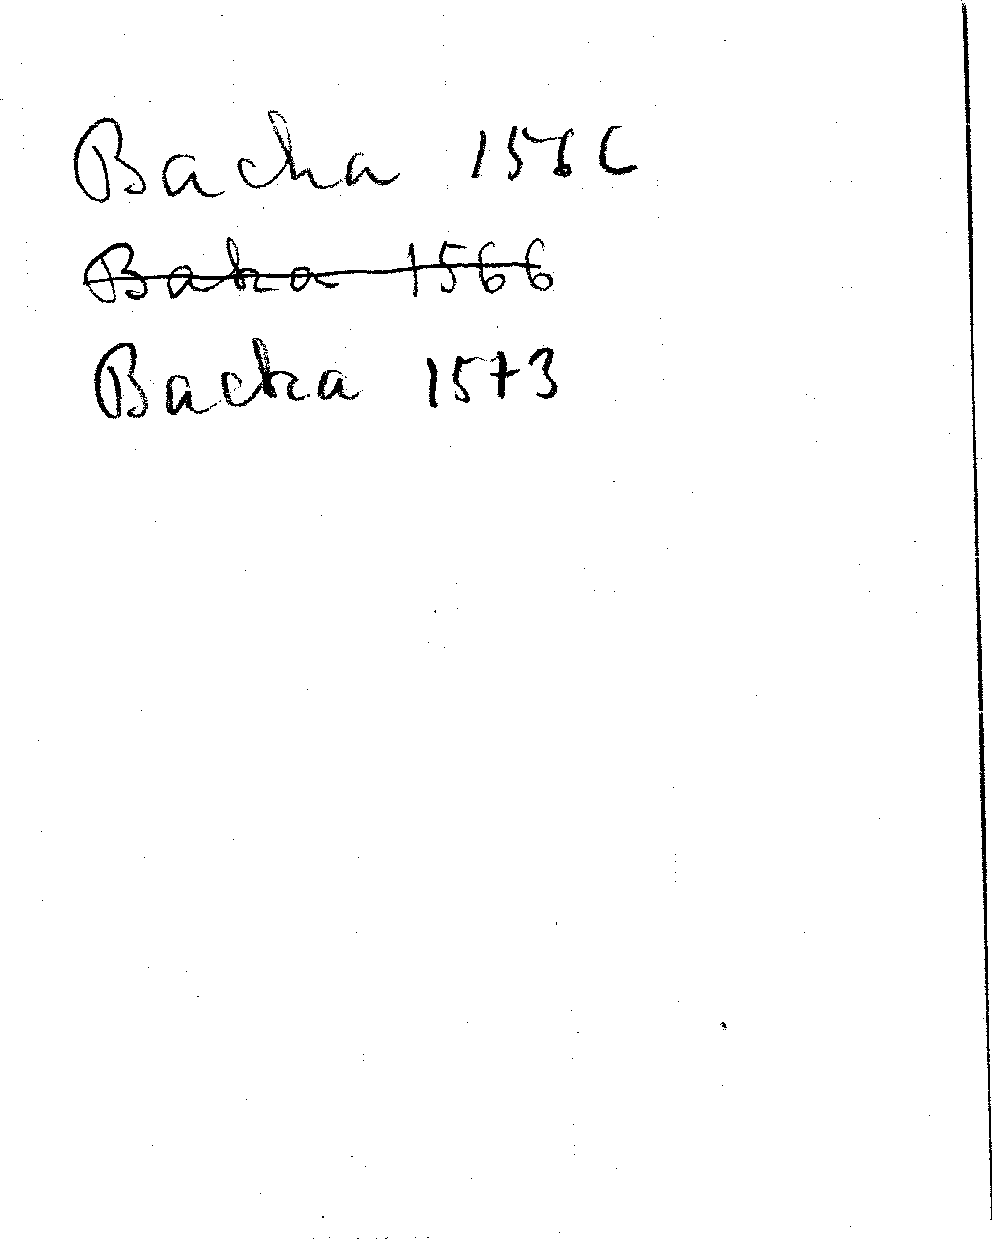 Backa 1566
Baka 1566
Backa 1573